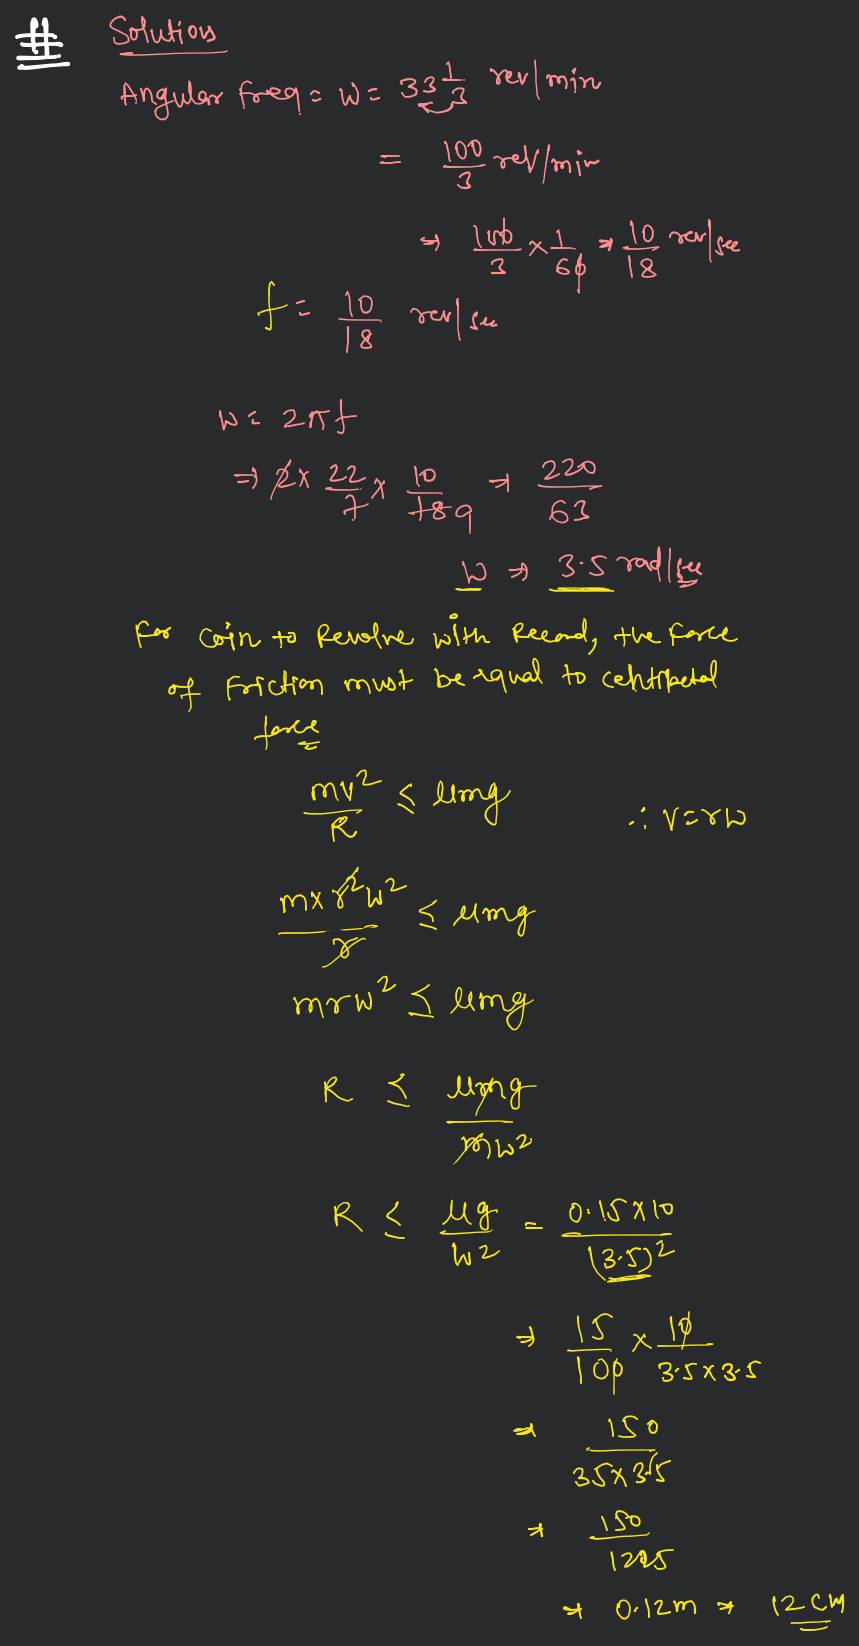 # Solution
Angular freq = W = 33 1/3 rev/min
= 100/3 rev/min
⇒ 100/3 × 1/60 ⇒ 10/18 rev/sec
f = 10/18 rev/sec
W = 2πf
⇒ 2 × 22/7 × 10/18 9 ⇒ 220/63
W ⇒ 3.5 rad/sec
For coin to Revolve with Record, the force
of Friction must be equal to centripetal
force
mv²/R ≤ μmg ∴ V = rW
m × r²w²/r ≤ μmg
mrw² ≤ μmg
R ≤ μmg/mw²
R ≤ μg/w² = 0.15 × 10/(3.5)²
⇒ 15/100 × 10/3.5 × 3.5
⇒ 150/35 × 35
⇒ 150/1225
⇒ 0.12m ⇒ 12 cm